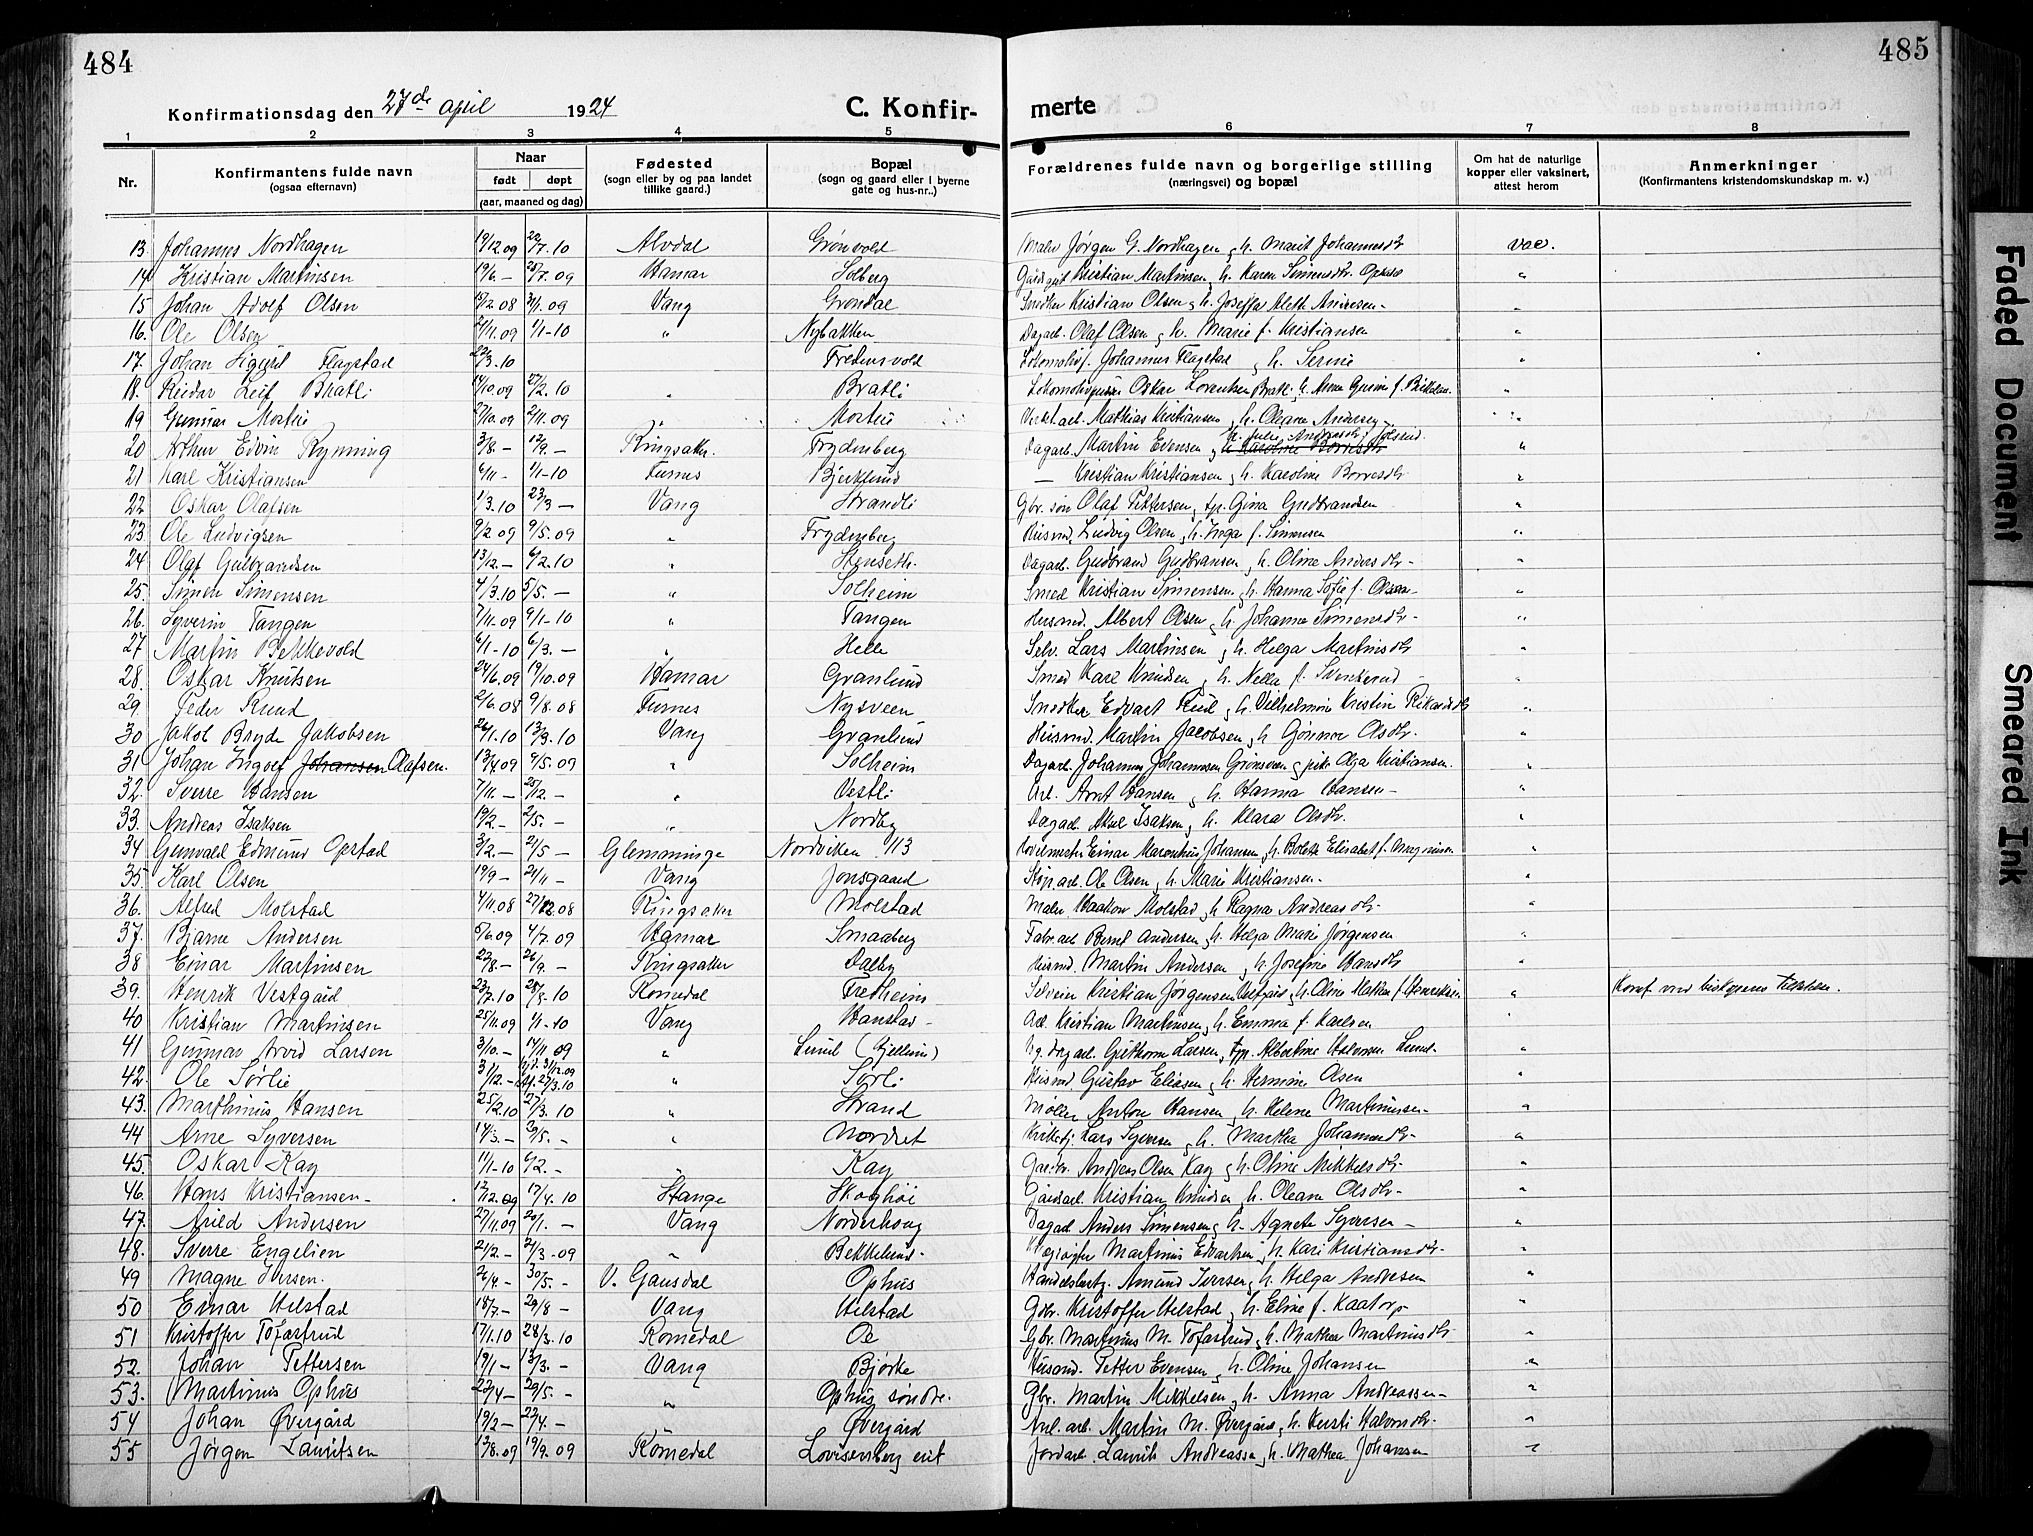 484
485
Konfirmationsdag den 27de april 1924
C. Konfir-
merte
1 2 3 4 5 6 7 8
Nr.
Konfirmantens fulde navn
(ogsaa efternavn)
Naar
født døpt
(aar, maaned og dag)
Fødested
(sogn eller by og paa landet
tillike gaard.)
Bopæl
(sogn og gaard eller i byerne
gate og hus-nr..)
Forældrenes fulde navn og borgerlige stilling
(næringsvei) og bopæl
Om hat de naturlige
kopper eller vaksinert,
attest herom
Anmerkninger
(Konfirmantens kristendomskundskap m. v.)
13. Johannes Nordhagen 19/12.09 22/7.10 Alvdal Grønvold Maler Jørgen G. Nordhagen, h. Marit Johannesdtr vac.
14 Kristian Martinsen 19/6 - 25/7.09 Hamar Solberg Kristian Martinsen, h. Karen Simensdtr. "
15 Johan Adolf Olsen 15/12.08 3/1.09 Vang Grøndal Snedker Kristian Olsen, h. Joseffa Aleth. "
16. Ole Olsen 2/11.09 1/1-10 " Nybakken Dagarb. Olaf Olsen, h. Marie f. Kristiansen "
17. Johan Sigurd Flagstad 22/3.10 Fredensvold Lokomotivf. Johannes Flagstad, h. Serine "
18. Reidar Leif Bratli 14/10.09 27/2.10 " Bratli Oskar Lorentsen Bratli, h. Anna "
19 Gunnar Mortli 2/11.09 " Mathias Kristiansen, h. Oleane "
20 Arthur Edvin Rynning 3/8.- 12/9. - Ringsaker. Frydenberg Dagarb. Martin Evensen, h. "
21 Karl Kristiansen 6/11 - 1/1-10 Furnes Bjerklund — Kristian Kristiansen, h. Karoline Borresdtr "
22 Oskar Olafsen 1/3.10 23/3 - Vang Strandli Gbr. søn Olaf Pettersen, tp. Gina Gudbrandsen "
23. Ole Ludvigsen 9/2 09 9/5.09 " Frydenberg Husmd. Ludvig Olsen, h. Inga f. Simensen "
24 Olaf Gulbrandsen 13/12.- 6/2.10 " Stenseth. Dagarb. Gudbrand Gudbransen, h. Oline Andersdtr - "
25. Simen Simensen 4/3.10 5/5. - " Solheim Smed Kristian Simensen, h. Hanna Sofie f. Olsen "
26. Syverin Tangen 7/11.09 9/1-10 " Tangen Husmd. Albert Olsen, h. Johanne Simensdtr - "
27 Martin Bekkevold 6/1-10 6/3. - " Helle Selv. Lars Martinsen, h. Helga Martinsdtr "
28. Oskar Knutsen 24/6.09 19/10.09 Hamar Granlund Smed Karl Knudsen, h. Nella f. Svenserud "
29. Peder Ruud 2/6.08 9/8.08 Furnes Nysveen Snedker Edvart Ruud, h. Vilhelmine Kristin Rikardsdtr "
30 Jakob Bryde Jakobsen 26/1.10 13/3.10 Vang Granlund Husmd. Martin Jacobsen, h. Gunnor Olsdtr. "
31. Johan Ingolf Johansen Olafsen. 13/4.09 9/5.09 " Solheim Dagarb. Johannes Johannesen Grønsveen, pike Olga Kristiansen. "
32. Sverre Hansen 7/11. - 25/12. - " Vestli Arb. Arnt Hansen, h. Hanna Hansen - "
33. Andreas Isaksen 19/2. - 2/5. - " Nordby Dagarb. Aksel Isaksen, h. Klara Olsdtr. "
34 Gunvald Edmund Opstad 3/2. - 21/5 - Glemminge Nordviken 113 Einar Johansen, h. Bolette Elisabet f. Magnusen "
35. Karl Olsen 19/9 - 21/11 - Vang Jonsgaard Ole Olsen, h. Marie Kristiansen. "
36. Alfred Molstad 4/11.08 27/12.08 Ringsaker Molstad Maler Haakon Molstad, h. Ragna Andreasdtr "
37. Bjarne Andersen 5/6.09 4/7.09 Hamar Smaaberg Fabr. arb. Bernt Andersen, h. Helga Marie Jørgensen "
38 Einar Martinsen 22/8. - 26/9. - Ringsaker Dalby Husmd. Martin Andersen, h. Josefine Hansdtr "
39. Henrik Vestgård 23/7.10 28/8.10 Romedal Fredheim Selveier Kristian Jørgensen Vestgård, h. Oline Mathea f. Henriksen " Konf. ved biskopens tillatelse.
40 Kristian Martinsen 25/11.09 1/1-10 Vang Hanstad - Arb. Kristian Martinsen, h. Emma f. Karlsen "
41 Gunnar Arvid Larsen 3/10. - 14/11 09 " Lund (Bjellum) Ug. dagarb. Guthorm Larsen, tp. Albertine Halvorsen Lund. "
42. Ole Sørlie 31/12. - 31/12.09 27/3.10 " Sørli Husmd. Gustav Eliasen, h. Hermine Olsen "
43. Marthinius Hansen 25/2.10 27/3.10 " Strand Møller Anton Hansen, h. Helene Martinusen - "
44 Arne Syversen 14/3. - 30/5. - " Nordset Lars Syversen, h. Martha Johannesdtr - "
45. Oskar Kay 11/1-10 6/2. - Kay Andreas Olsen Kay, h. Oline Mikkelsdtr. "
46. Hans Kristiansen - 12/12.09 17/4.10 Stange Skoghøi Gårdsarb. Kristian Knudsen, h. Oleane Olsdtr - "
47. Arild Andersen 27/11.09 20/1. - Vang Norderhaug Dagarb. Anders Simensen, h. Agnete Syversen - "
48. Sverre Engelien 2/2. - 21/3 -09 " Bekkelund - Martinus Edvartsen, h. Kari Kristiansdtr. "
49 Magne Iversen. 26/4. - 30/5. - V. Gausdal Ophus Handelsbetj. Amund Iversen, h. Helga Andresen "
50 Einar Hilstad 18/7. - 29/8 - Vang Hilstad Gbr. Kristoffer Hilstad, h. Eline f. Kaatorp "
51 Kristoffer Tofastrud 17/1.10 28/3.10 Romedal Oe Gbr. Martinus M. Tofastrud, h. Mathea Martinusdtr "
52. Johan Pettersen 19/1 - 13/3. - Vang Bjørke Husmd. Petter Evensen, h. Oline Johansen "
53. Martinus Ophus 22/4 - 29/5. - " Ophus søndre. Gbr. Martin Mikkelsen, h. Anna Andreassen - "
54 Johan Øvergård 19/2 - 22/4. - Øvergård Anl. arb. Martin M. Øvergård, h. Kersti Halvorsdtr. "
55 Jørgen Lauritsen 13/8.09 19/9.09 Romedal Lovisenberg eit Jordarb. Laurits Andreassen, h. Mathea Johansen "
Faded Document
Smeared Ink